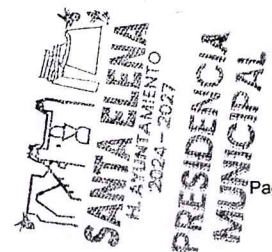 SANTA ELENA
H. AYUNTAMIENTO
2024-2027
PRESIDENCA
MUNICIPAL
Pa